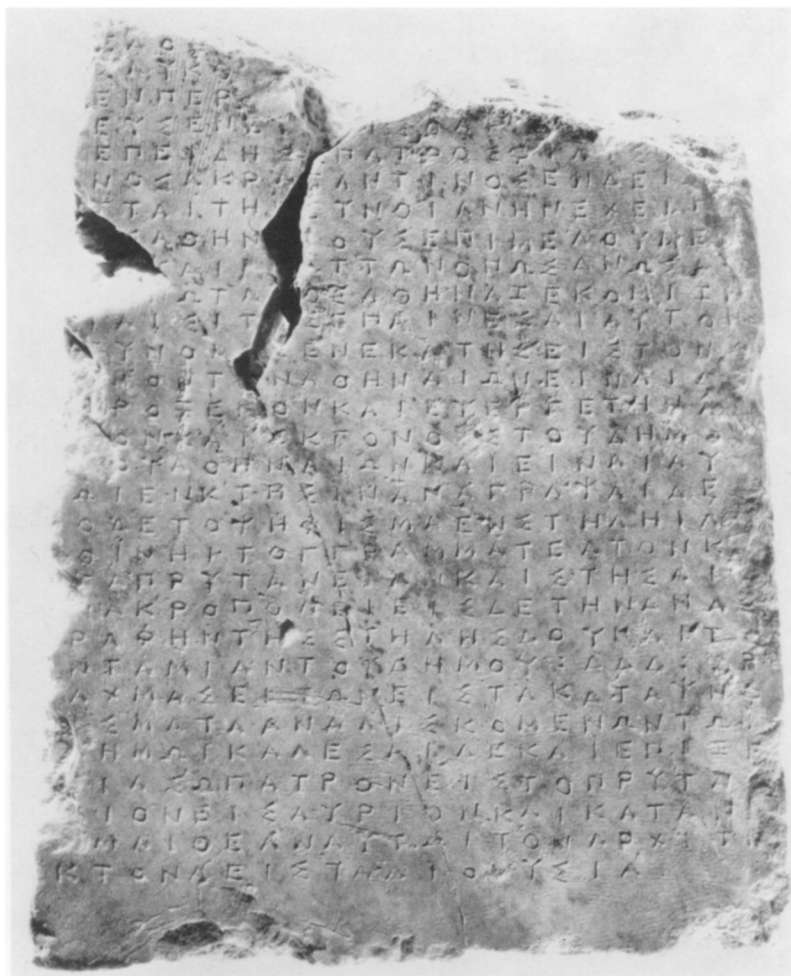 ΛΥΚ
ΕΝΠΕΡ
ΕΥΣΕΝΣ
ΕΠΕΙΔΗΣ ΠΑΤΡΟΣΦΙΛΙΣ
ΝΟΣΑΚΡΑΓΑΝΤΙΝΟΣΕΝΔΕΙΚ
ΤΑΙΤΗ ΥΝΟΙΑΝΗΝΕΧΕΙΠ
ΑΘΗΝ ΟΥΣΕΠΙΜΕΛΟΥΜΕ
ΑΙΠ ΤΤΩΝΟΠΩΣΑΝΩΣ
ΩΤΑ ΟΣΑΘΗΝΑΙΕΚΟΜΙΙ
ΑΙΣΙΤ ΣΕΠΑΙΝΕΣΑΙΑΥΤΟΝ
ΥΝΟΙ ΕΝΕΚΑΤΗΣΕΙΣΤΟΝ
ΜΟΝΤ ΝΑΘΗΝΑΙΩΝΕΙΝΑΙΔ
ΡΟΞΕΝΟΝΚΑΙΕΥΕΡΓΕΤΗΝΑ
ΟΝΚΑΙΕΚΓΟΝΟΥΣΤΟΥΔΗΜΟ
ΤΑΘΗΝΑΙΩΝΚΑΙΕΙΝΑΙΑΥ
ΩΙΕΝΚΤΗΣΙΝΑΝΑΓΡΑΨΑΙΔΕ
ΟΔΕΤΟΨΗΦΙΣΜΑΕΝΣΤΗΛΗΙΛ
ΘΙΝΗΙΤΟΓΓΡΑΜΜΑΤΕΑΤΟΝΚ
ΤΑΠΡΥΤΑΝΕΙΑΝΚΑΙΣΤΗΣΑΙ
ΝΑΚΡΟΠΟΛΕΙΕΙΣΔΕΤΗΝΑΝΑ
ΡΑΦΗΝΤΗΣΣΤΗΛΗΣΔΟΥΝΑΙΤΟ
ΝΤΑΜΙΑΝΤΟΥΔΗΜΟΥΔΔΔ ΔΡ
ΑΧΜΑΣΕΚΤΩΝΕΙΣΤΑΚΑΤΑΨΗ
ΙΣΜΑΤΑΑΝΑΛΙΣΚΟΜΕΝΩΝΤΩΙ
ΗΜΩΙΚΑΛΕΣΑΙΔΕΚΑΙΕΠΙΞΕ
ΙΑΣΩΠΑΤΡΟΝΕΙΣΤΟΠΡΥΤΑ
ΙΟΝΕΙΣΑΥΡΙΟΝΚΑΙΚΑΤΑΝ
ΜΑΙΘΕΑΝΑΥΤΩΙΤΟΝΑΡΧΙΤΕ
ΚΤΟΝΑΕΙΣΤΑΔΙΟΝΥΣΙΑ